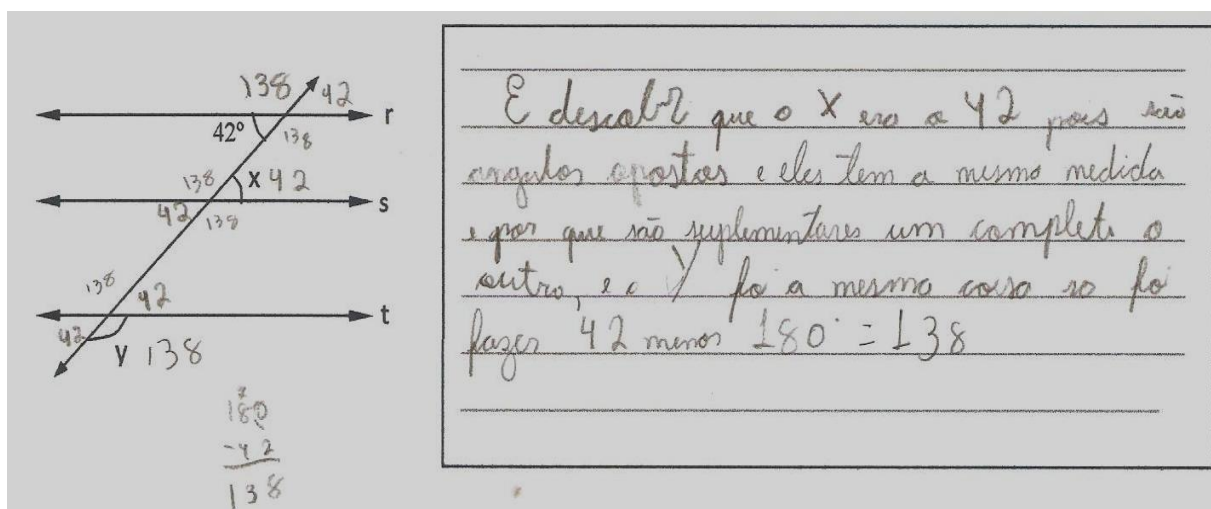 138 42
r
42º 138
138 x 42
s
42 138
138 42
t
42 y 138
180
-42
138
E descobri que o X era o 42 pois são
angulos opostos e eles tem a mesma medida
e por que são suplementares um completa o
outro, e o y foi a mesma coisa so foi
fazer 42 menos 180° = 138